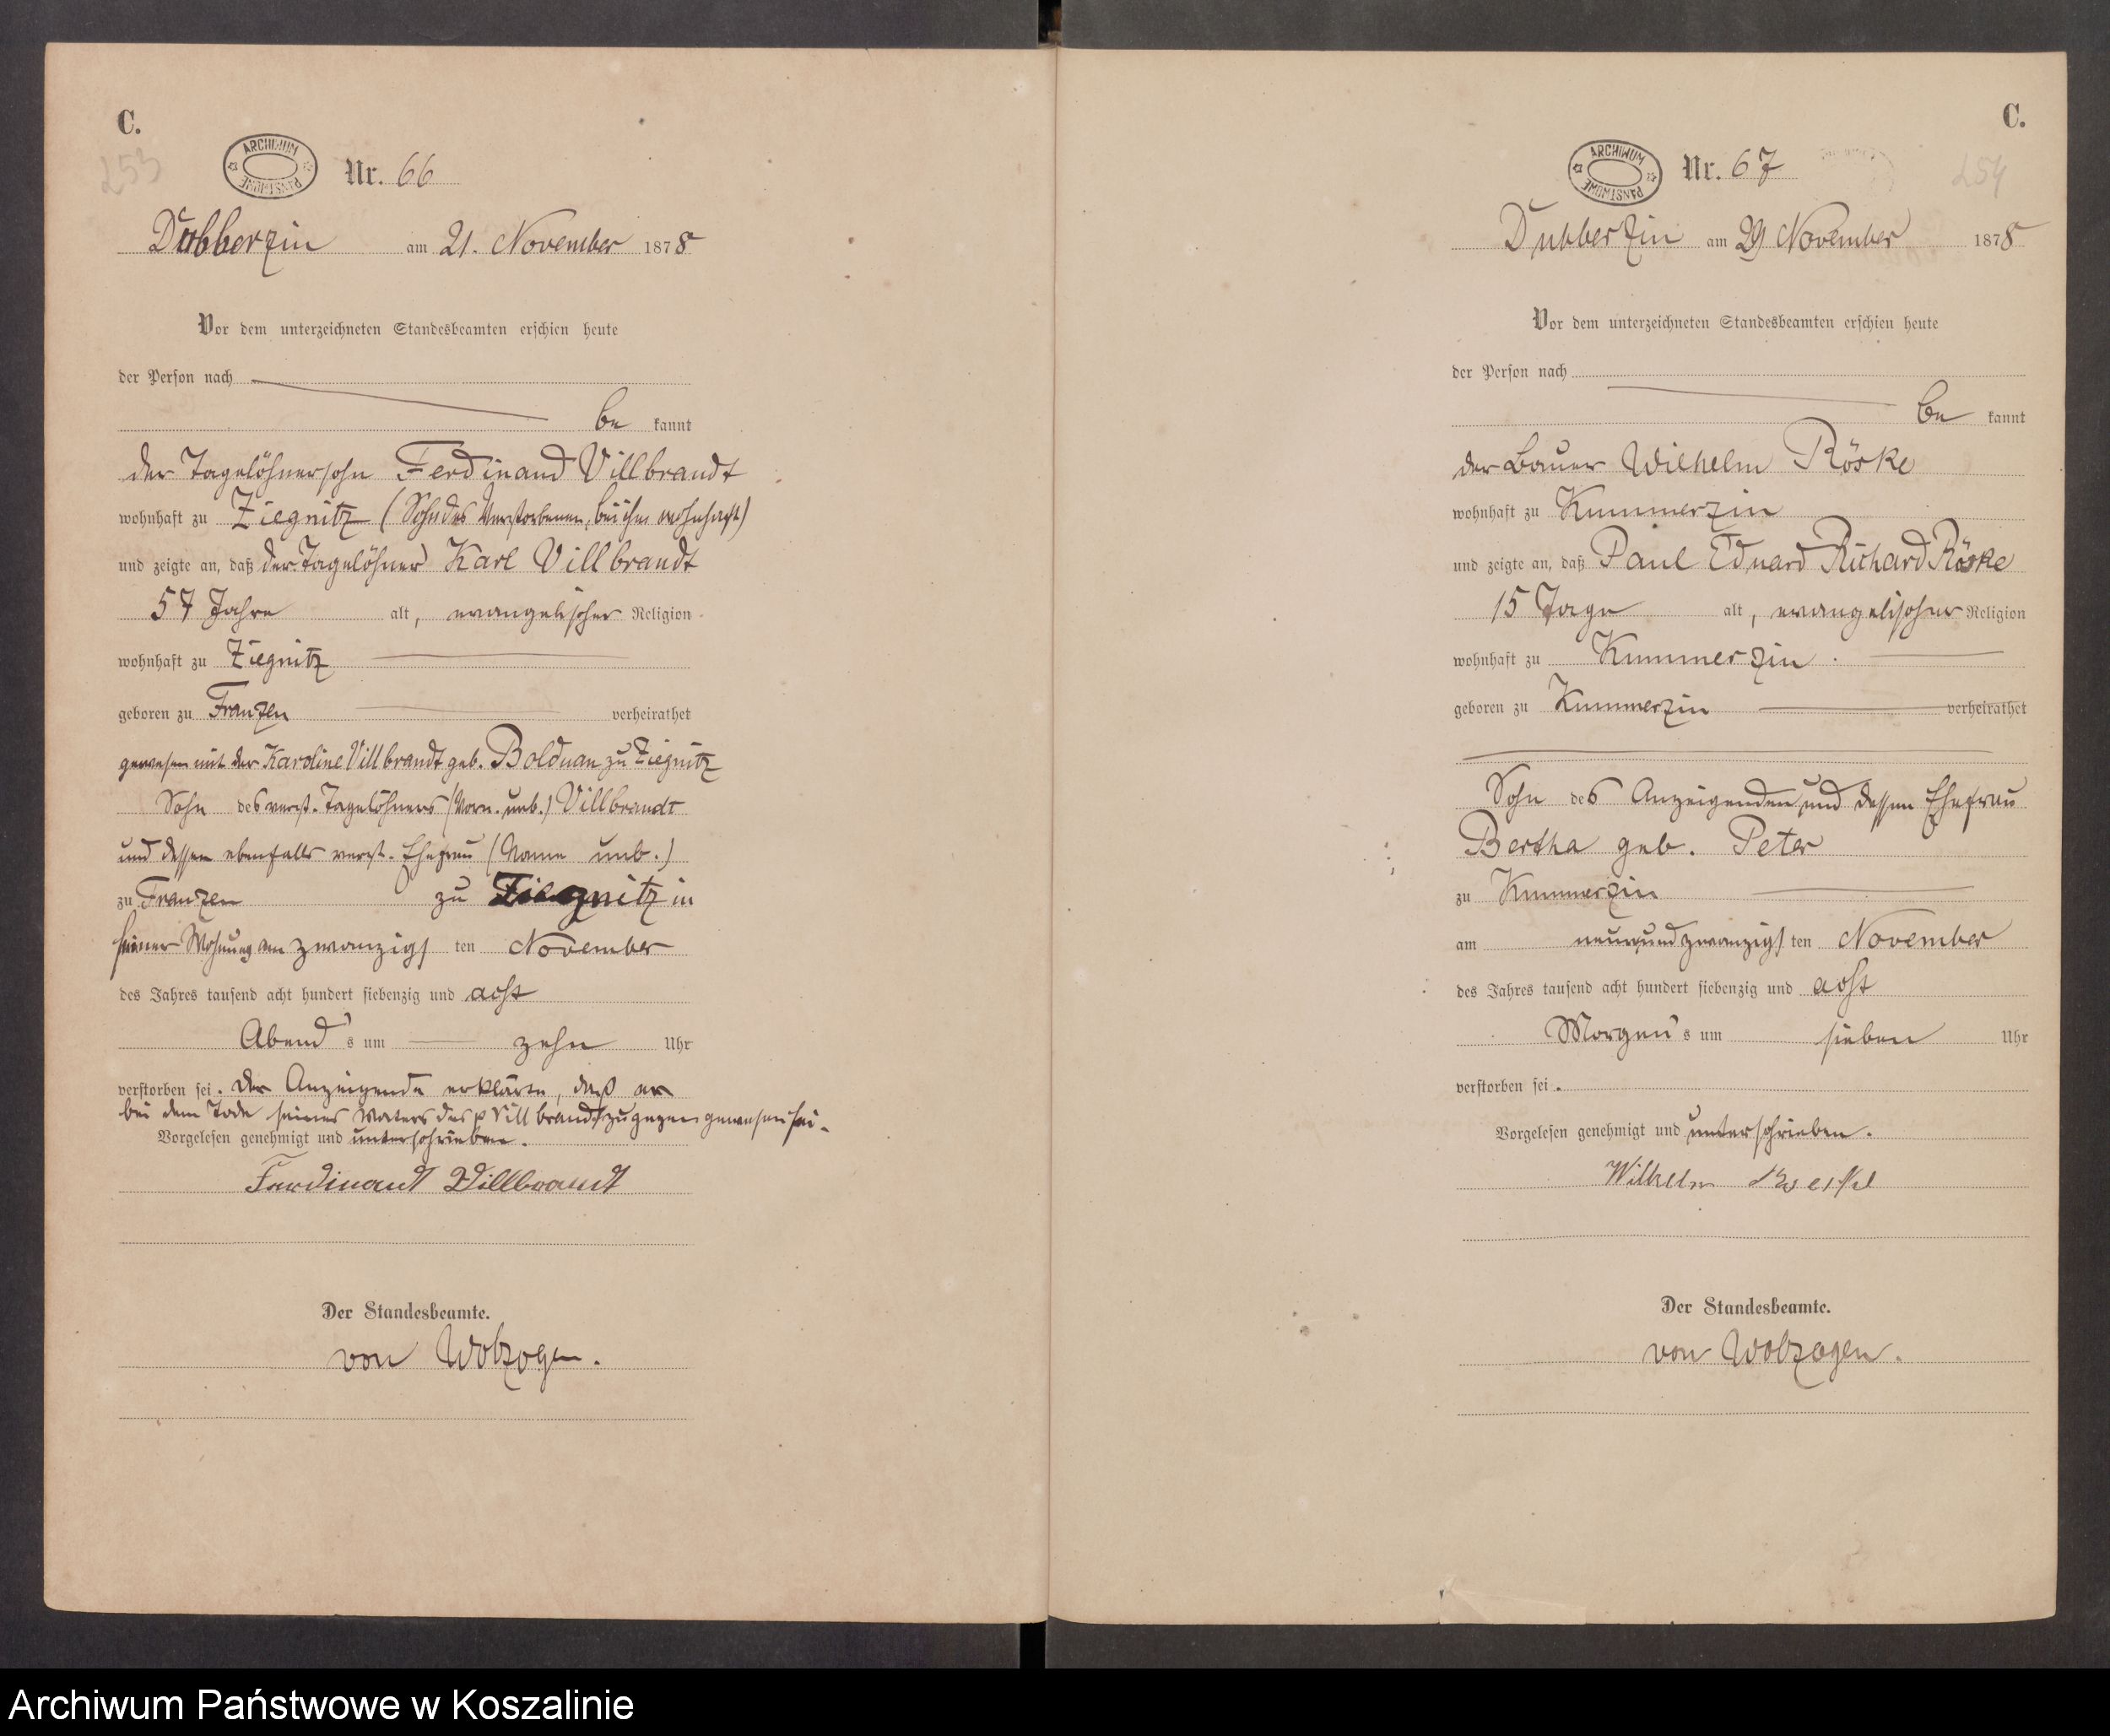 C.
253
ARCHIWUM PAŃSTWOWE
Nr. 66
Dubberzin am 21. November 1878
Vor dem unterzeichneten Standesbeamten erschien heute
der Person nach
be kannt
der Tagelöhnersohn Ferdinand Villbrandt
wohnhaft zu Ziegnitz (Sohn des Verstorbenen, bei ihm wohnhaft)
und zeigte an, daß der Tagelöhner Karl Villbrandt
57 Jahre alt, evangelischer Religion
wohnhaft zu Ziegnitz
geboren zu Franzen verheirathet
gewesen mit der Karoline Villbrandt geb. Bolduan zu Ziegnitz
Sohn des verst. Tagelöhners (Vorn. unb.) Villbrandt
und dessen ebenfalls verst. Ehefrau (Name unb.)
zu Franzen zu Ziegnitz in
seiner Wohnung am zwanzigs ten November
des Jahres tausend acht hundert siebenzig und acht
Abend s um zehn Uhr
verstorben sei. Der Anzeigende erklärte, daß er
bei dem Tode seines Vaters des p Villbrandt zugegen gewesen sei.
Vorgelesen genehmigt und unterschrieben.
Ferdinant Villbrandt
Der Standesbeamte.
von Wolzogen.
C.
254
ARCHIWUM PAŃSTWOWE
Nr. 67
Dubberzin am 29 November 1878
Vor dem unterzeichneten Standesbeamten erschien heute
der Person nach
be kannt
der Bauer Wilhelm Röske
wohnhaft zu Kummerzin
und zeigte an, daß Paul Eduard Richard Röske
15 Tage alt, evangelischer Religion
wohnhaft zu Kummerzin.
geboren zu Kummerzin verheirathet
Sohn des Anzeigenden und dessen Ehefrau
Bertha geb. Peter
zu Kummerzin
am neunundzwanzigs ten November
des Jahres tausend acht hundert siebenzig und acht
Morgen s um sieben Uhr
verstorben sei.
Vorgelesen genehmigt und unterschrieben.
Wilhelm
Der Standesbeamte.
von Wolzogen.
Archiwum Państwowe w Koszalinie